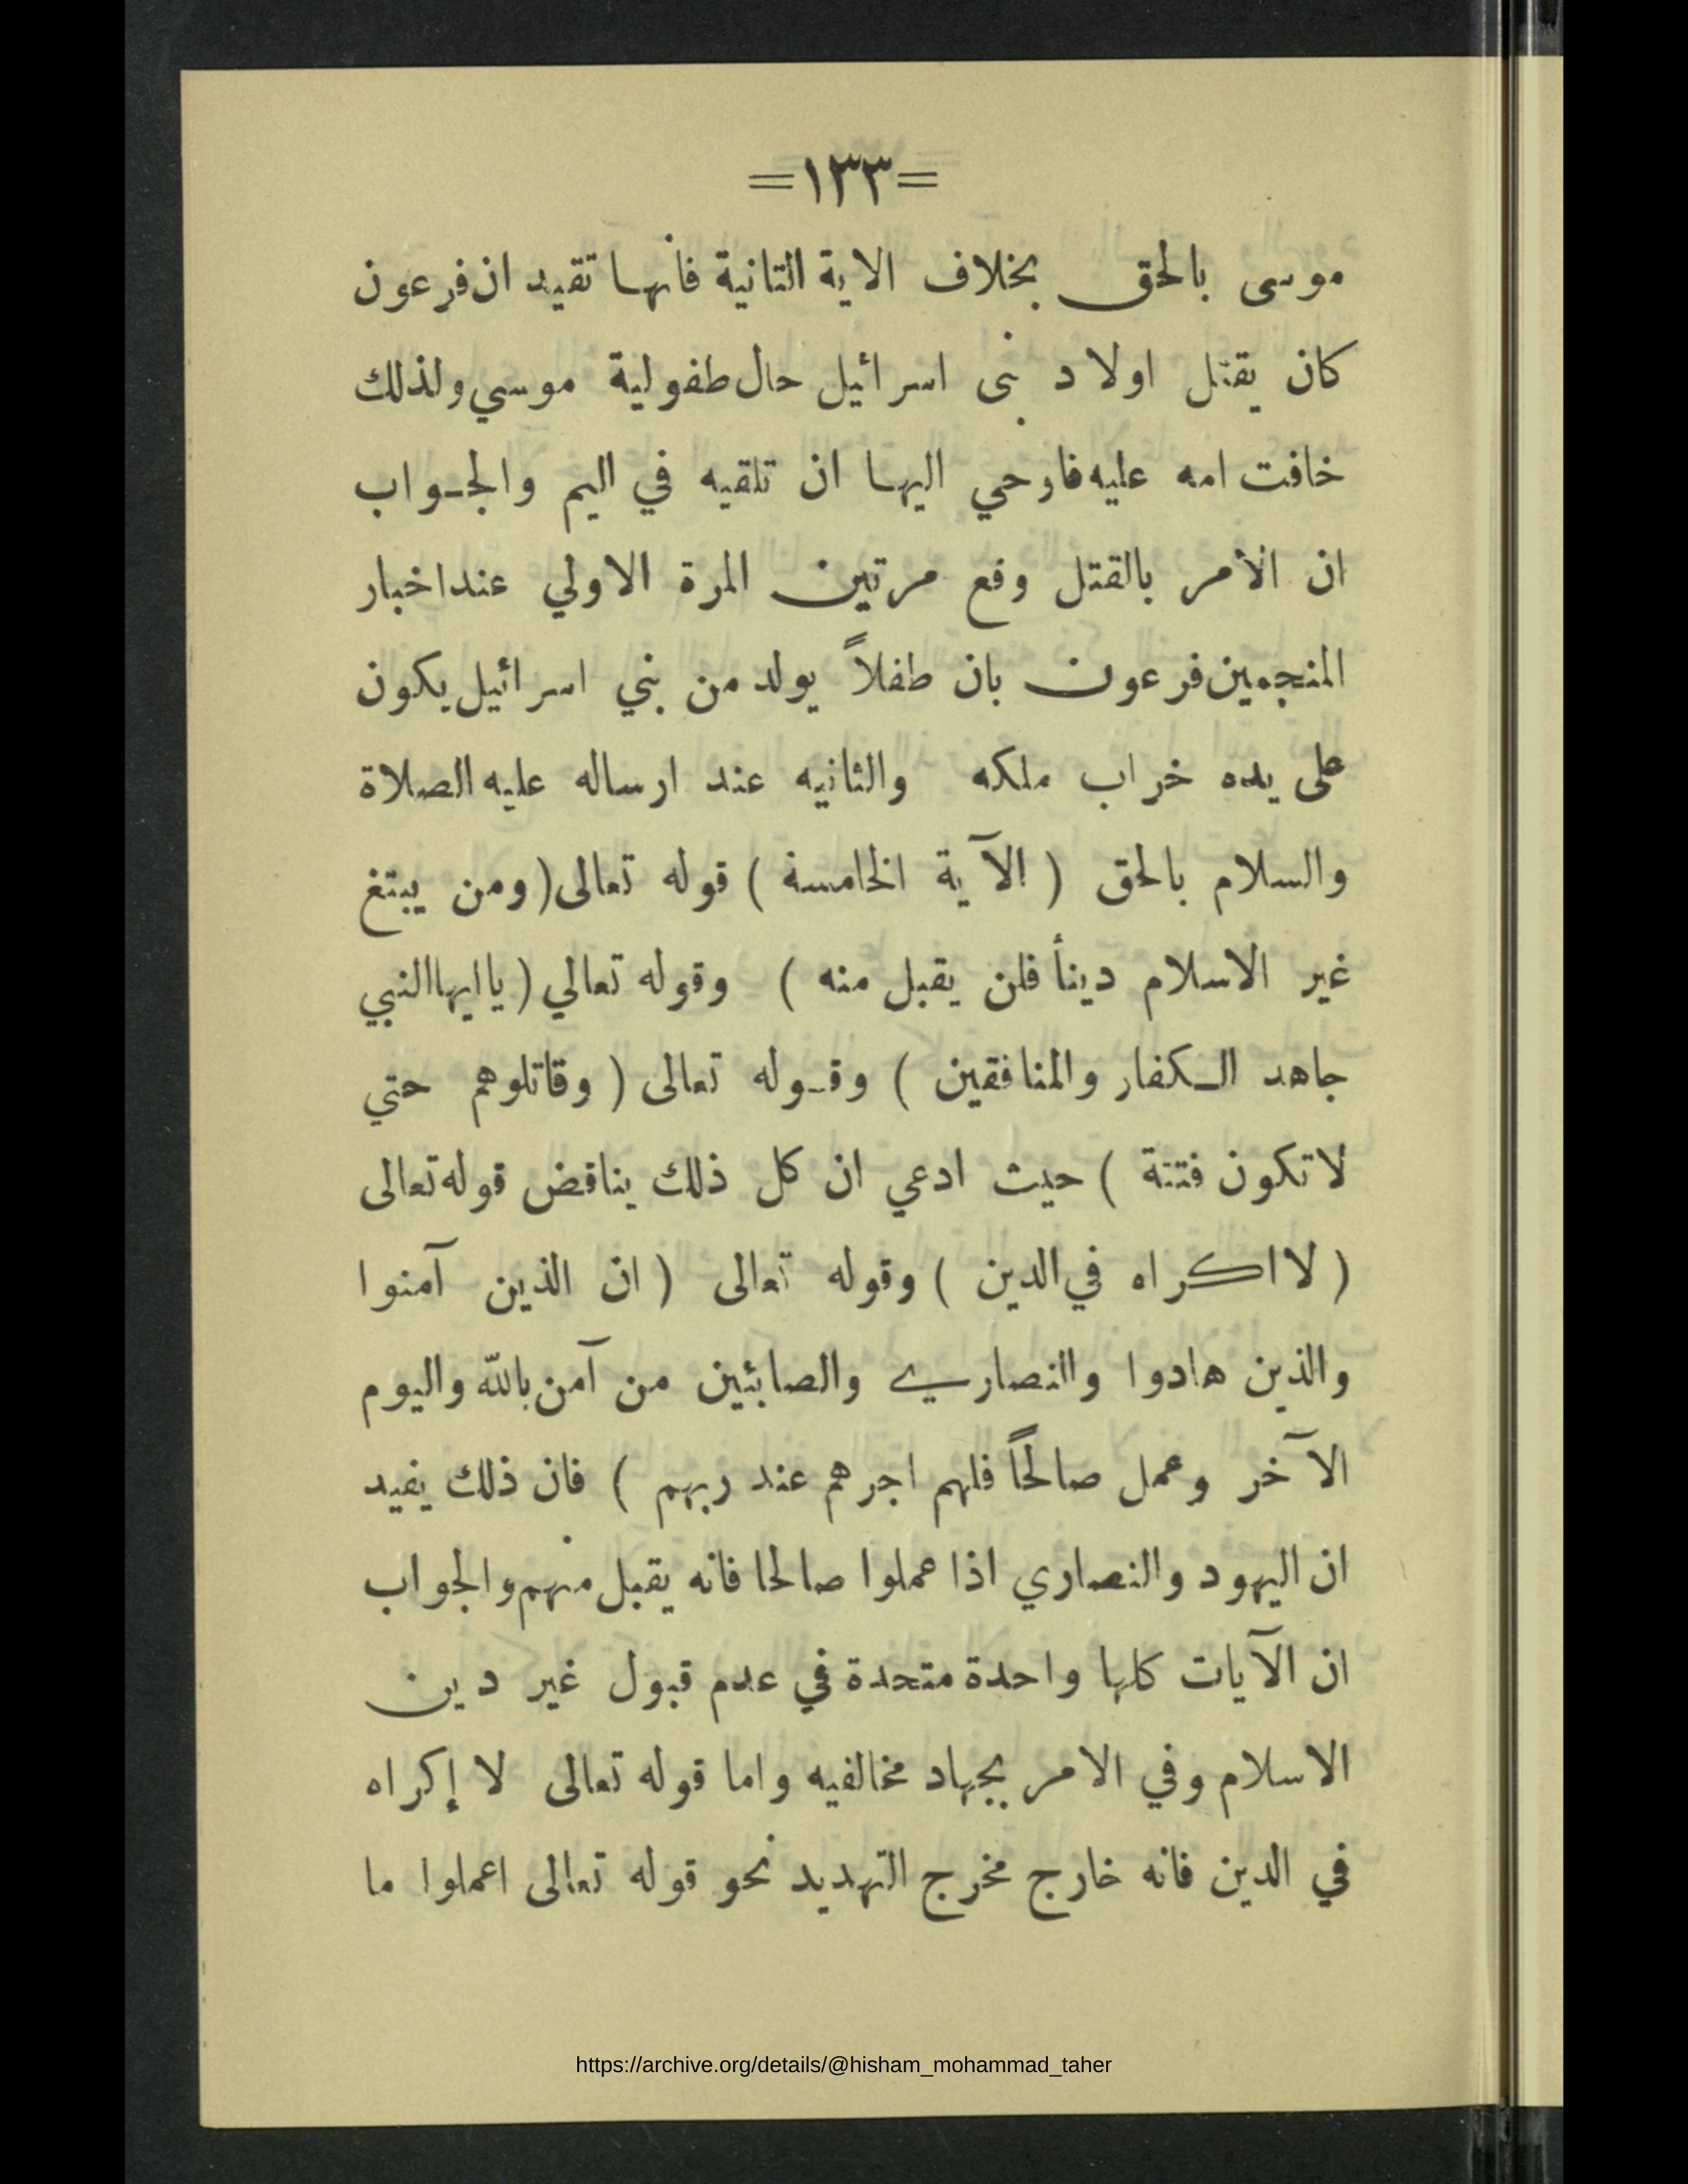 =١٣٣=
موسى بالحق بخلاف الاية الثانية فأنها تقيد ان فرعون
كان يقتل اولاد بنى اسرائيل حال طفولية موسي ولذلك
خافت امه عليه فاوحي اليها ان تلقيه في اليم والجـواب
ان الأمر بالقتل وقع مرتين المرة الاولي عند اخبار
المنجمين فرعون بان طفلاً يولد من بني اسرائيل يكون
على يده خراب ملكه والثانيه عند ارساله عليه الصلاة
والسلام بالحق ( الآية الخامسة ) قوله تعالى ( ومن يبتغ
غير الاسلام دينأ فلن يقبل منه ) وقوله تعالي ( ياايها النبي
جاهد الـكفار والمنافقين ) وقـوله تعالى ( وقاتلوهم حتي
لا تكون فتنة ) حيث ادعي ان كل ذلك يناقض قوله تعالى
( لا اكراه في الدين ) وقوله تعالى ( ان الذين آمنوا
والذين هادوا والنصاري والصابئين من آمن بالله واليوم
الآخر وعمل صالحاً فلهم اجرهم عند ربهم ) فان ذلك يفيد
ان اليهود والنصاري اذا عملوا صالحا فانه يقبل منهم والجواب
ان الآيات كلها واحدة متحدة في عدم قبول غير دين
الاسلام وفي الامر بجهاد مخالفيه واما قوله تعالى لا إكراه
في الدين فانه خارج مخرج التهديد نحو قوله تعالى اعملوا ما
https://archive.org/details/@hisham_mohammad_taher